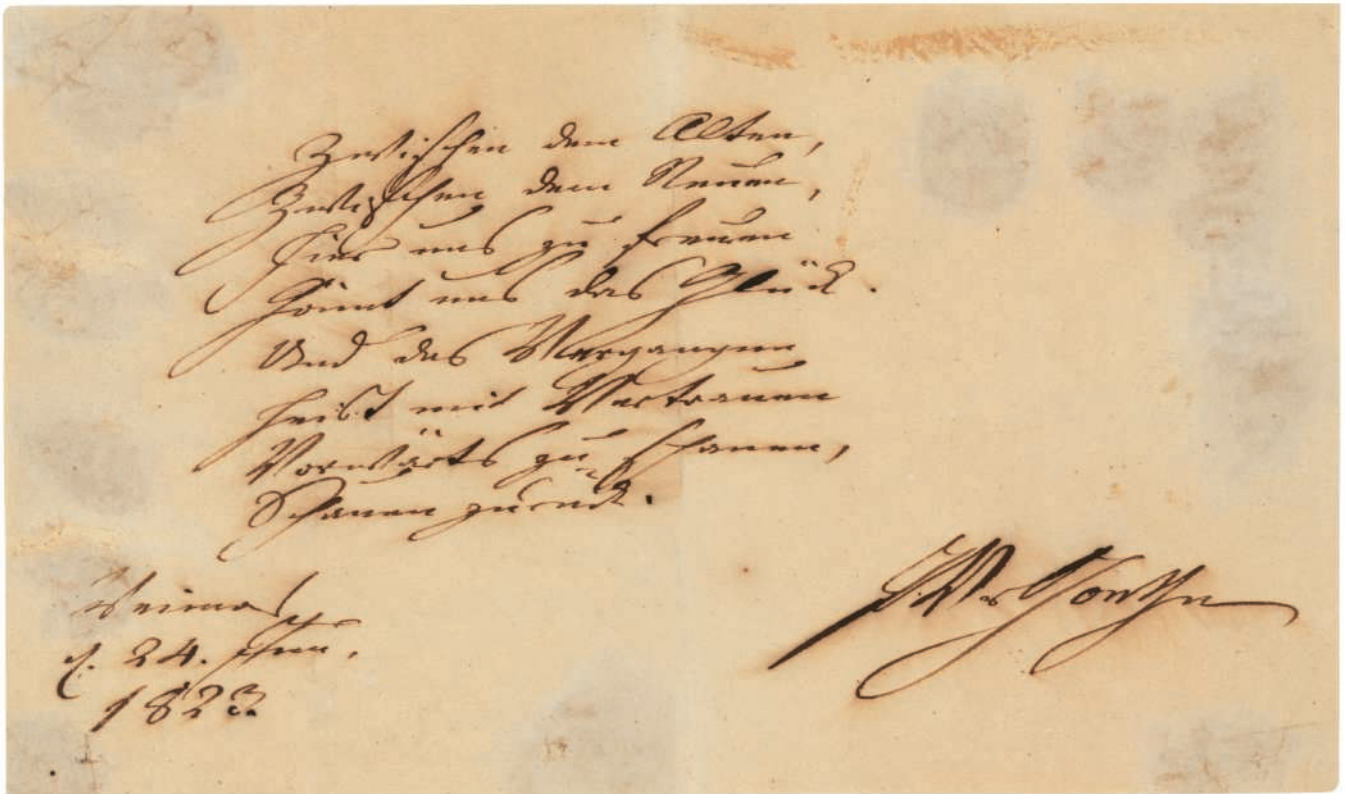 Zwischen dem Alten,
Zwischen dem Neuen,
Hier uns zu freuen
Gönnt uns das Glück.
Und das Vergangne
Heist mit Vertrauen
Vorwärts zu schauen,
Schauen zurück.
JWvGoethe
Weimar
d. 24.
1823